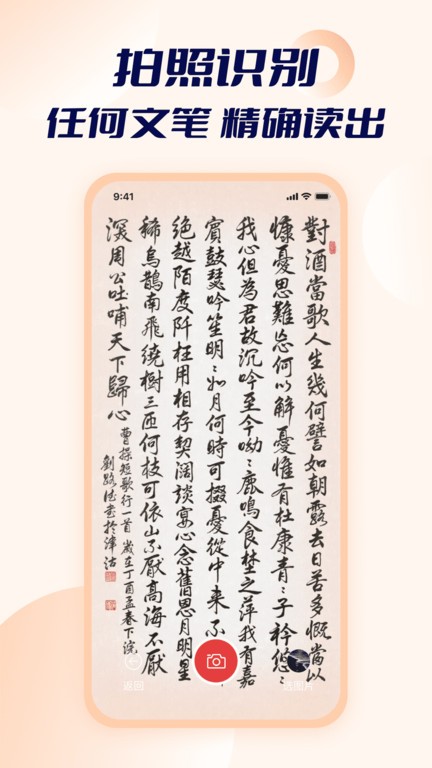 拍照识别
任何文笔 精确读出
9:41
對酒當歌人生幾何譬如朝露去日苦多慨當以
慷憂思難忘何以解憂惟有杜康青〻子衿悠〻
我心但為君故沉吟至今呦〻鹿鳴食埜之萍我有嘉
賓鼓瑟吟笙明〻如月何時可掇憂從中来不
絕越陌度阡枉用相存契闊談宴心念舊恩月明星
稀烏鵲南飛繞樹三匝何枝可依山不厭高海不厭
深周公吐哺天下歸心
曹操短歌行一首 歲在丁酉孟春下浣
劉路書於津沽
返回